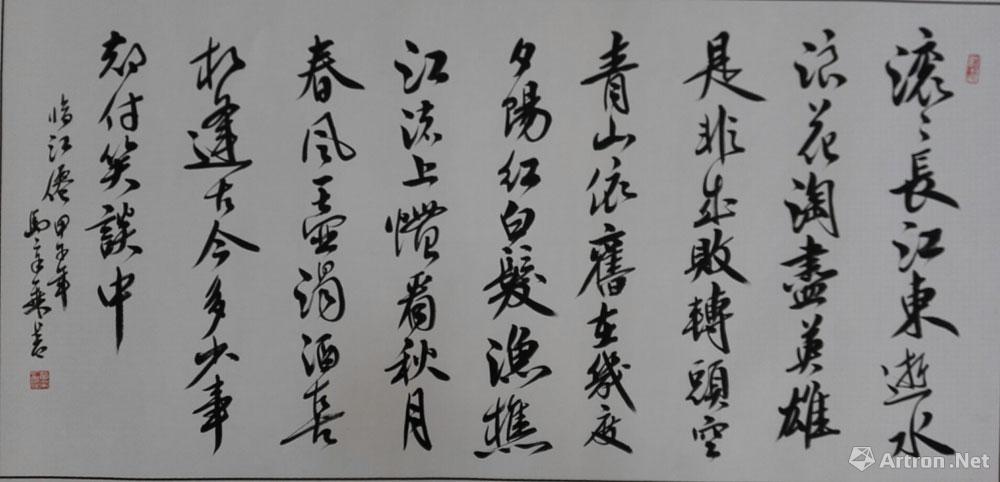 滚々長江東逝水
浪花淘盡英雄
是非成敗轉頭空
青山依舊在幾度
夕陽紅白髮漁樵
江渚上慣看秋月
春風一壺濁酒喜
相逢古今多少事
都付笑談中
臨江僊甲午年
馬書
Artron.Net